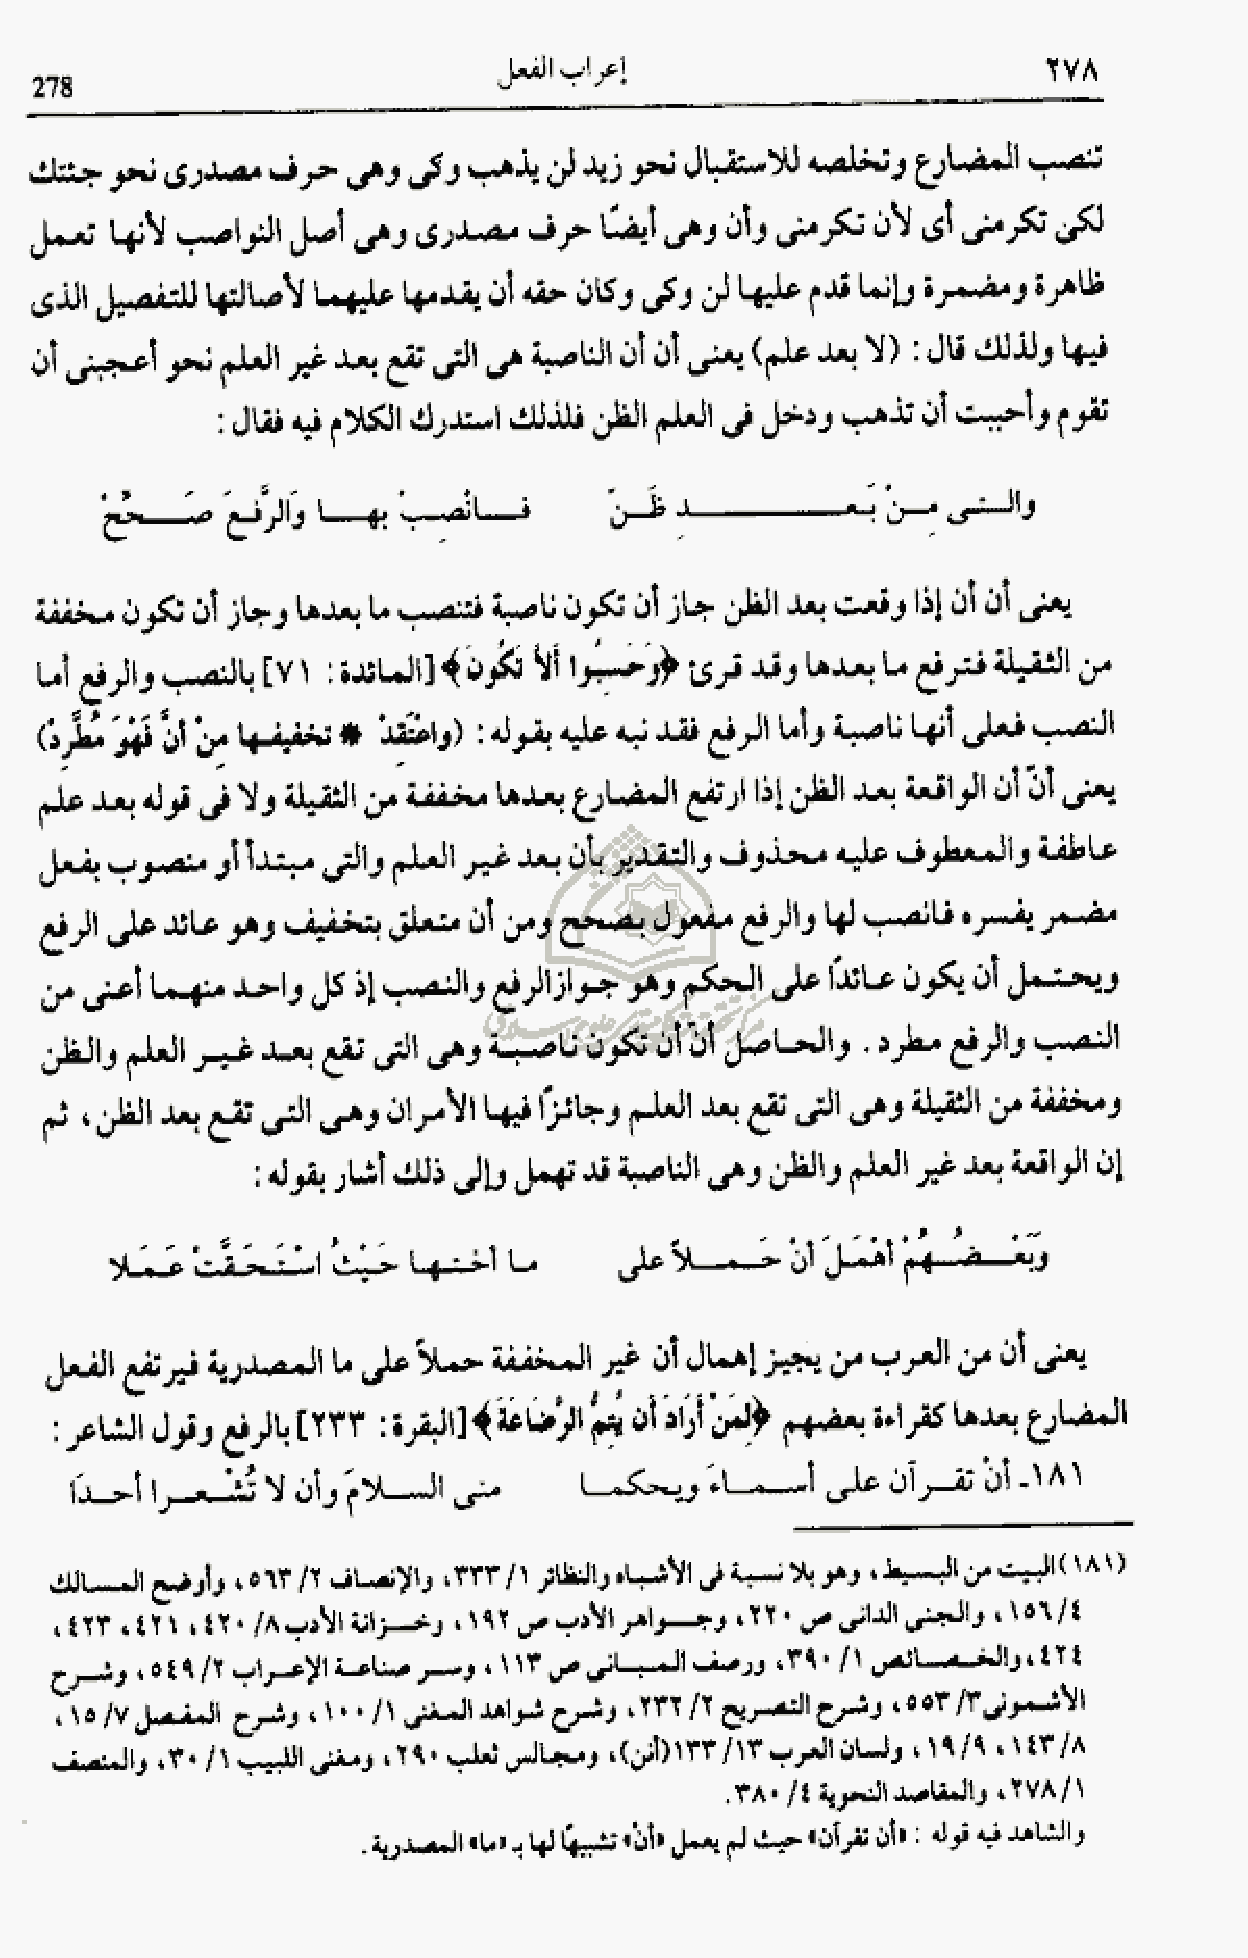 ٢٧٨
إعراب الفعل
278
تنصب المضارع وتخلصه للاستقبال نحو زيد لن يذهب وكى وهى حرف مصدرى نحو جئتك
لكى تكرمنى أى لأن تكرمنى وأن وهى أيضًا حرف مصدرى وهى أصل النواصب لأنها تعمل
ظاهرة ومضمرة وإنما قدم عليها لن وكى وكان حقه أن يقدمها عليهما لأصالتها للتفصيل الذى
فيها ولذلك قال : (لا بعد علم) يعنى أن أن الناصبة هى التى تقع بعد غير العلم نحو أعجبنى أن
تقوم وأحببت أن تذهب ودخل فى العلم الظن فلذلك استدرك الكلام فيه فقال :
والتى مِنْ بَعدِ ظَنّ فانْصِبْ بها وَالرَّفعَ صَحِّحْ
يعنى أن أن إذا وقعت بعد الظن جاز أن تكون ناصبة فتنصب ما بعدها وجاز أن تكون مخففة
من الثقيلة فترفع ما بعدها وقد قرئ ﴿وَحَسِبُوا أَلاَّ تَكُونَ﴾ [المائدة : ٧١] بالنصب والرفع أما
النصب فعلى أنها ناصبة وأما الرفع فقد نبه عليه بقوله : (واعْتَقِدْ * تخفيفها مِنْ أنَّ فَهْوَ مُطَّرِدْ)
يعنى أنّ أن الواقعة بعد الظن إذا ارتفع المضارع بعدها مخففة من الثقيلة ولا فى قوله بعد علم
عاطفة والمعطوف عليه محذوف والتقدير بأن بعد غير العلم والتى مبتدأ أو منصوب بفعل
مضمر يفسره فانصب لها والرفع مفعول بصحح ومن أن متعلق بتخفيف وهو عائد على الرفع
ويحتمل أن يكون عائدًا على الحكم وهو جواز الرفع والنصب إذ كل واحد منهما أعنى من
النصب والرفع مطرد . والحاصل أنّ أن تكون ناصبة وهى التى تقع بعد غير العلم والظن
ومخففة من الثقيلة وهى التى تقع بعد العلم وجائزًا فيها الأمران وهى التى تقع بعد الظن، ثم
إن الواقعة بعد غير العلم والظن وهى الناصبة قد تهمل وإلى ذلك أشار بقوله :
وَبَعْضُهُمْ أهْمَلَ أنْ حَملاً على ما أختها حَيْثُ اسْتَحَقَّتْ عَمَلا
يعنى أن من العرب من يجيز إهمال أن غير المخففة حملاً على ما المصدرية فيرتفع الفعل
المضارع بعدها كقراءة بعضهم ﴿لِمَنْ أَرَادَ أن يُتِمُّ الرَّضَاعَةَ﴾ [البقرة : ٢٣٣] بالرفع وقول الشاعر :
١٨١ـ أنْ تقرآن على أسماءَ ويحكما منى السلامَ وأن لا تُشْعرا أحدَا
(١٨١) البيت من البسيط، وهو بلا نسبة فى الأشباه والنظائر ١/ ٣٣٣، والإنصاف ٢/ ٥٦٣، وأوضح المسالك
٤/ ١٥٦، والجنى الدانى ص ٢٢٠، وجواهر الأدب ص ١٩٢، وخزانة الأدب ٨/ ٤٢٠، ٤٢١، ٤٢٣،
٤٢٤، والخصائص ١/ ٣٩٠، ورصف المبانى ص ١١٣، وسر صناعة الإعراب ٢/ ٥٤٩، وشرح
الأشمونى٣/ ٥٥٣، وشرح التصريح ٢/ ٢٣٢، وشرح شواهد المغنى ١/ ١٠٠، وشرح المفصل ٧/ ١٥،
٨/ ١٤٣، ٩/ ١٩، ولسان العرب ١٣/ ١٣٣(أنن)، ومجالس ثعلب ٢٩٠، ومغنى اللبيب ١/ ٣٠، والمنصف
١/ ٢٧٨، والمقاصد النحوية ٤/ ٣٨٠.
والشاهد فيه قوله : «أن تقرآن» حيث لم يعمل «أنْ» تشبيهًا لها بـ «ما» المصدرية .